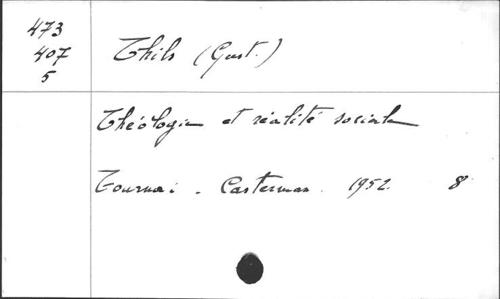 473
407
5
Thils (Gust.)
Théologie et réalité sociale
Tournai - Casterman 1952. 8°